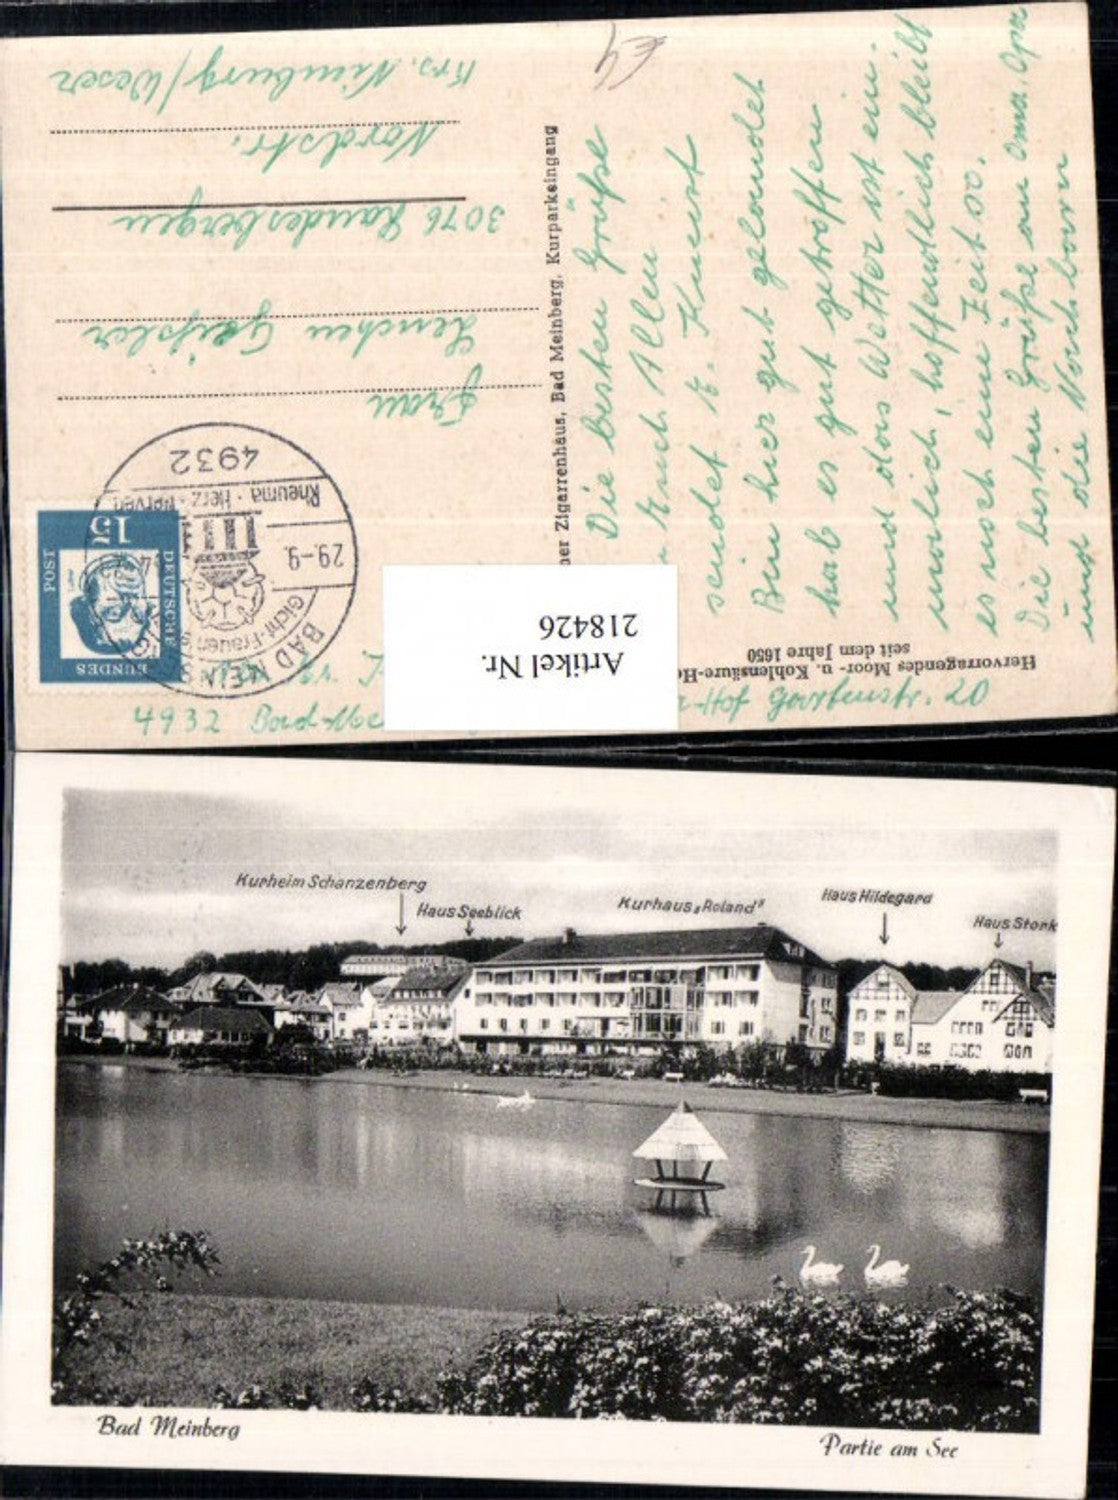 Die besten Grüße
Euch Allen
sendet E. Kunist
Bin hier gut gelandet
hab es gut getroffen
und das Wetter ist ein-
malich, hoffendlich bleibt
es noch eine Zeit so.
Die besten Grüße an Oma. Opa
und die Nachbarn
Frau
Lenchen Geißler
3076 Landesbergen
Nordstr.
Krs. Nienburg/Weser
4932
Rheuma · Herz · Nerven
29.-9.
Gicht · Frauen
BAD MEIN
15
DEUTSCHE
BUNDES
POST
ner Zigarrenhaus, Bad Meinberg, Kurparkeingang
Hervorragendes Moor- u. Kohlensäure-He
seit dem Jahre 1650
4932 Bad-Me
-Hof Gartenstr. 20
Artikel Nr.
218426
Kurheim Schanzenberg
Haus Seeblick
Kurhaus „Roland"
Haus Hildegard
Haus Stork
Bad Meinberg
Partie am See